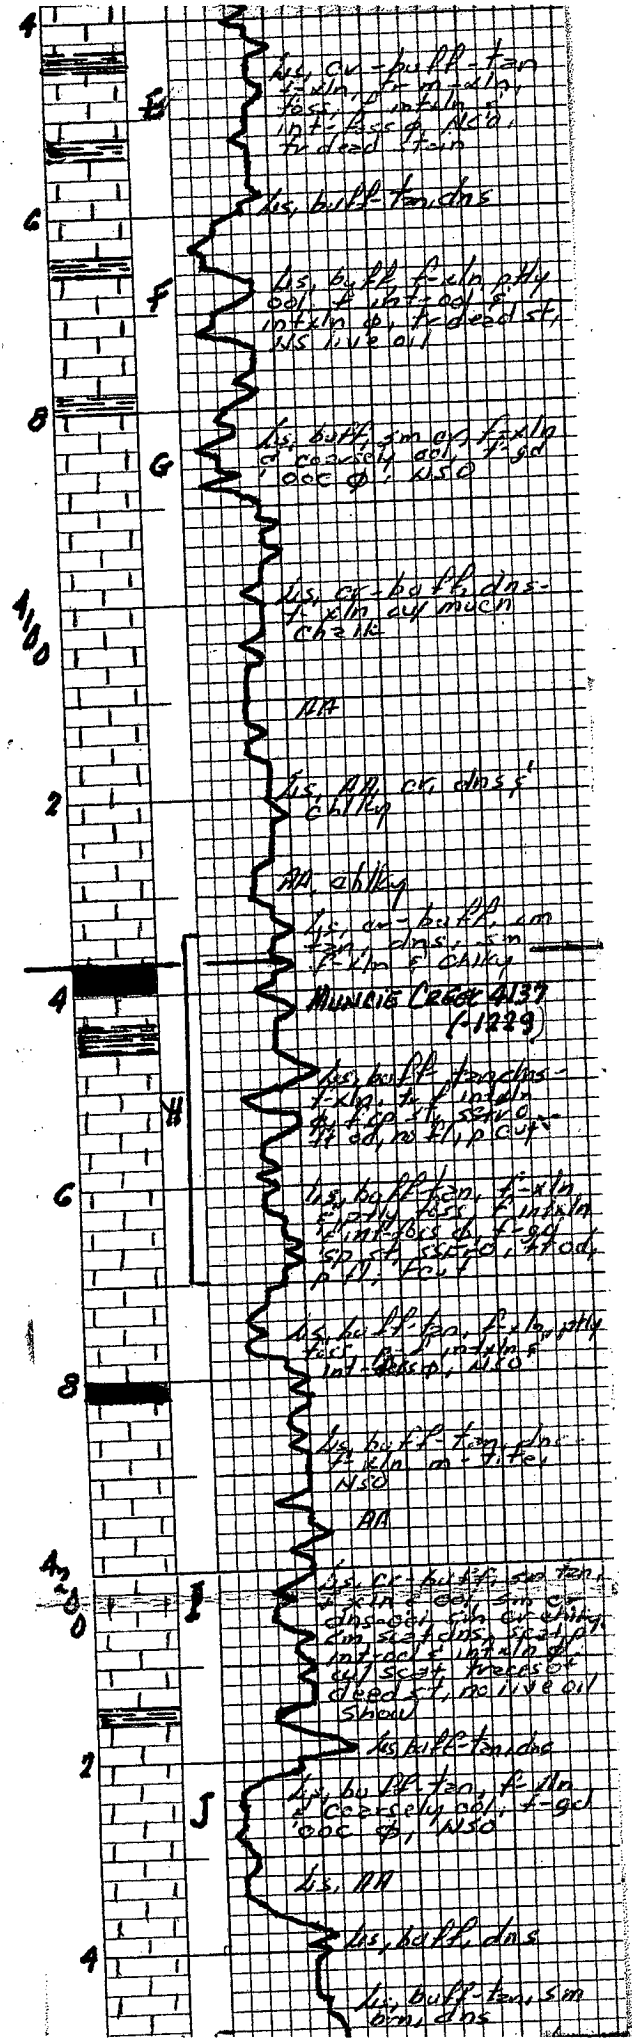 4
Ls, cr-buff-tan
f-xln, tr m-xln,
foss, f intxln &
int-foss φ, NSO,
tr dead stain
E
6
Ls, buff-tan, dns
F
Ls, buff, f-xln ptly
ool, f int-ool &
intxln φ, tr dead st,
NS live oil
8
G
Ls, buff, sm cr, f-xln
& coarsely ool, f-gd
ooc φ, NSO
4100
Ls, cr-buff, dns-
f-xln w/ much
chalk
AA
2
Ls, AA, cr, dns &
chlky
AA, chlky
Ls, cr-buff, sm
tan, dns, sm
f-xln & chlky
4
MUNCIE CREEK 4137
(-1229)
H
Ls, buff-tan, dns-
f-xln, tr f intxln
φ, f sp st,
ft od, no fl, p cut
6
Ls, buff-tan, f-xln
& ptly foss, f intxln
& int-foss φ, f-gd
sp st, SSFO, ft od,
p fl, f cut
Ls, buff-tan, f-xln, ptly
foss, p-f intxln &
int-foss φ, NSO
8
Ls, buff-tan, dns-
f-xln, m-tite,
NSO
AA
4200
I
Ls, cr-buff, sm tan,
f-xln & ool, sm cr
dns-ool, sm cr chlky,
sm scat dns, scat p
int-ool & intxln φ
w/ scat traces of
dead st, no live oil
show
Ls buff-tan, dns
2
J
Ls, buff-tan, f-xln
& coarsely ool, f-gd
ooc φ, NSO
Ls, AA
4
Ls, buff, dns
Ls, buff-tan, sm
brn, dns